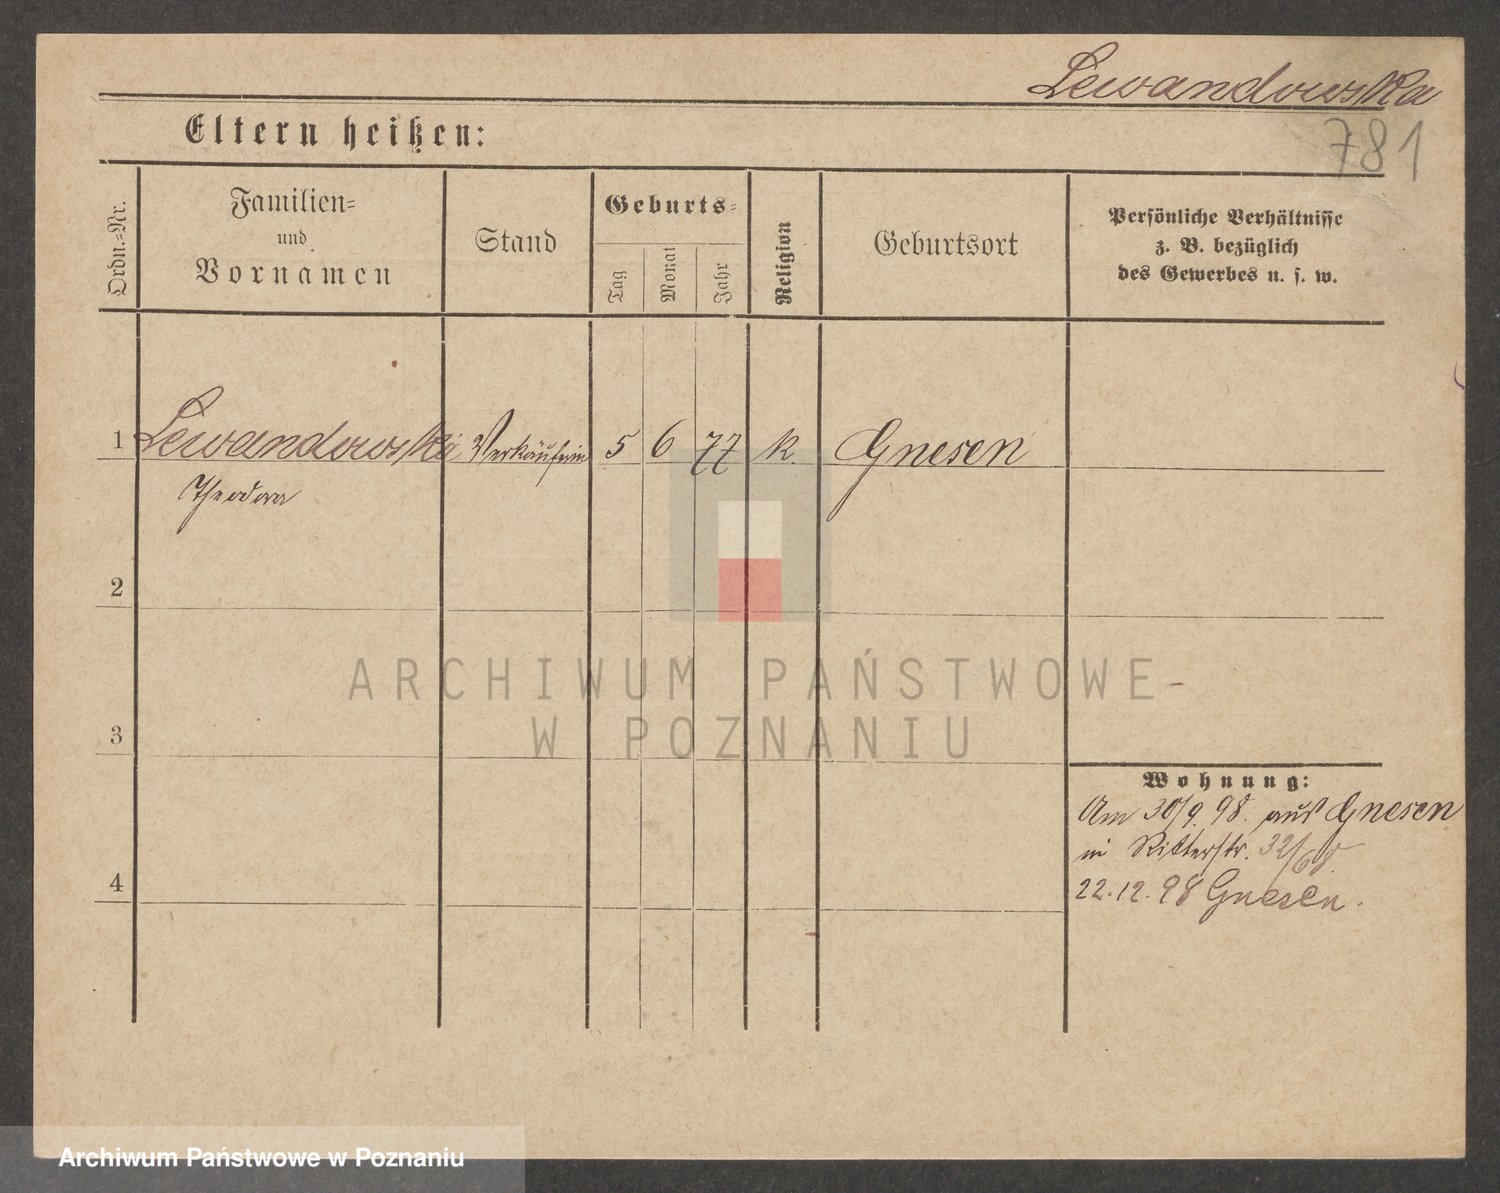 Lewandowska
781
Eltern heißen:
Ordn.=Nr.
Familien=
und
Vornamen
Stand
Geburts=
Tag
Monat
Jahr
Religion
Geburtsort
Persönliche Verhältnisse
z. B. bezüglich
des Gewerbes u. s. w.
1 Lewandowska Verkäuferin 5 6 77 k. Gnesen
Theodora
2
ARCHIWUM PAŃSTWOWE
W POZNANIU
3
Wohnung:
Am 30/9. 98. aus Gnesen
in Ritterstr. 32/
4
22.12.98 Gnesen.
Archiwum Państwowe w Poznaniu